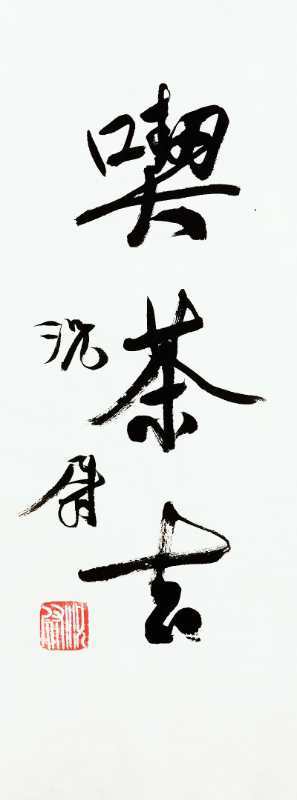 喫茶去
沈鹏